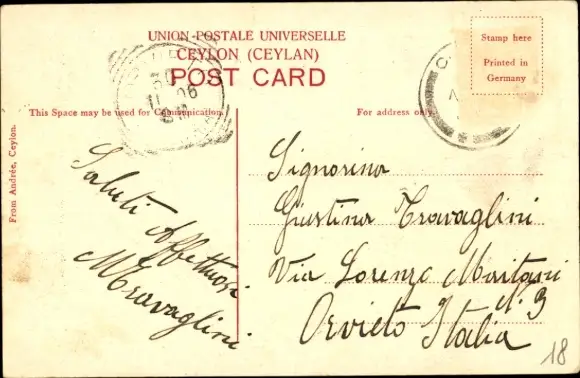 UNION POSTALE UNIVERSELLE
CEYLON (CEYLAN)
POST CARD
Stamp here
Printed in
Germany
This Space may be used for Communication.
For address only.
From Andrée, Ceylon.
Saluti
Affettuosi
MTravaglini
Signorina
Giustina Travaglini
Via Lorenzo Maitani
N. 3
Orvieto Italia
18